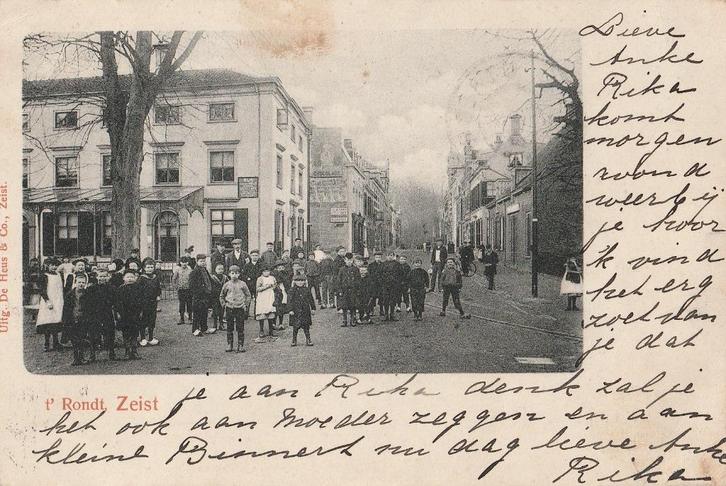 Uitg. De Heus & Co., Zeist.
t' Rondt, Zeist
Lieve
Anke
Rika
komt
morgen
avond
weer bij
je hoor
ik vind
het erg
zoet van
je dat
je aan Rika denk zal je
het ook aan Moeder zeggen en aan
kleine Binnert nu dag lieve Anke
Rika